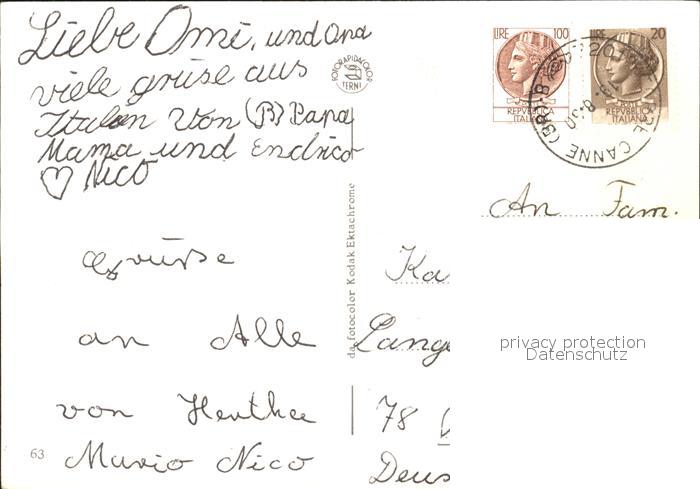 Liebe Omi, und Opa
viele grüse aus
Italen von (B) Papa
Mama und Endrico
♡ Nico
Grüße
an Alle
von Hertha
Mario Nico
63
FOTORAPIDACOLOR
TERNI
da fotocolor Kodak Ektachrome
LIRE 100
REPVBBLICA
ITALIANA
LIRE 20
REPVBBLICA
ITALIANA
CANNE
An Fam.
Ka
Lange
78
Deus
privacy protection
Datenschutz